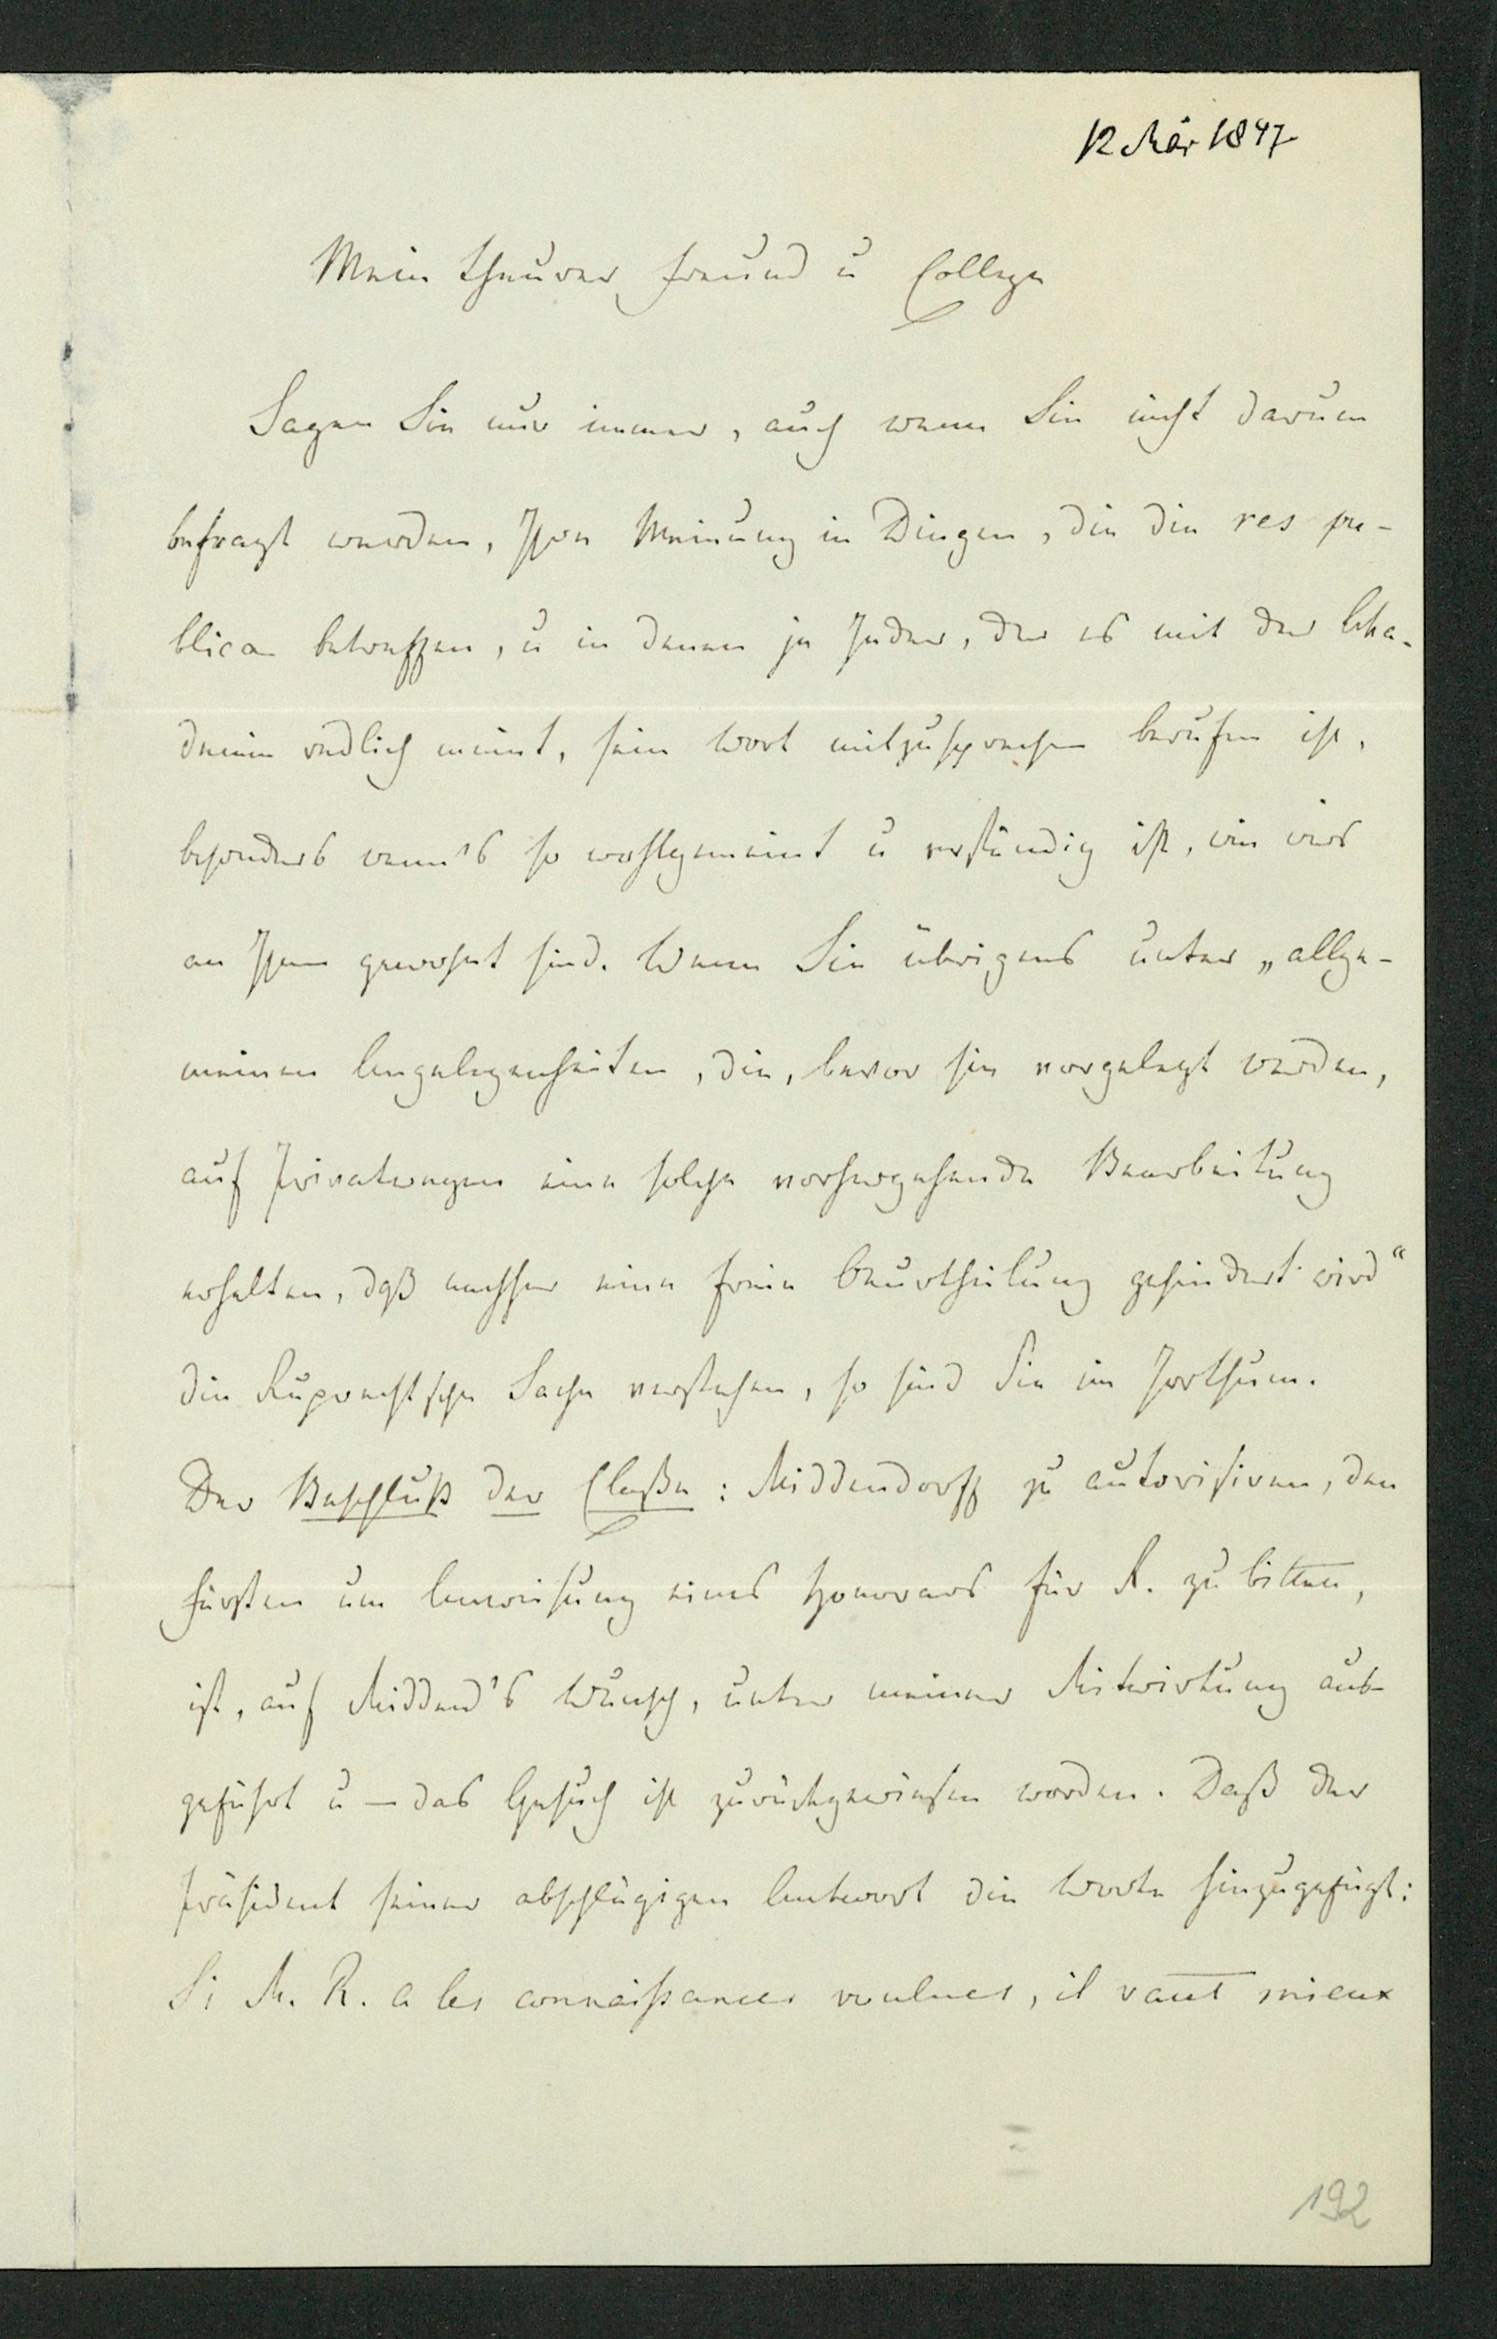 12 Mär 1847
Mein theurer Freund u College
Sagen Sie nur immer, auch wenn Sie nicht darum
befragt werden, Ihre Meinung in Dingen, die die res pu-
blica betreffen, u in denen ja Jeder, der es mit der Aka-
demie redlich meint, sein Wort mitzusprechen berufen ist,
besonders wenn's so wohlgemeint u verständig ist, wie wirs
an Ihnen gewohnt sind. Wenn Sie übrigens unter „allge-
meinen Angelegenheiten, die, bevor sie vorgelegt werden,
auf Privatwegen eine solche vorhergehende Bearbeitung
erhalten, daß nachher eine freie Beurtheilung gehindert wird“
die Ruprechtsche Sache verstehen, so sind Sie im Irrthum.
Der Beschluß der Claße: Middendorff zu autorisiren, den
Fürsten um Anweisung eines Honorars für R. zu bitten,
ist, auf Middend's Wunsch, unter meiner Mitwirkung aus-
geführt u — das Gesuch ist zurückgewiesen worden. Daß der
Präsident seiner abschlägigen Antwort die Worte hinzugefügt:
Si M. R. a les connaissances voulues, il vaut mieux
192